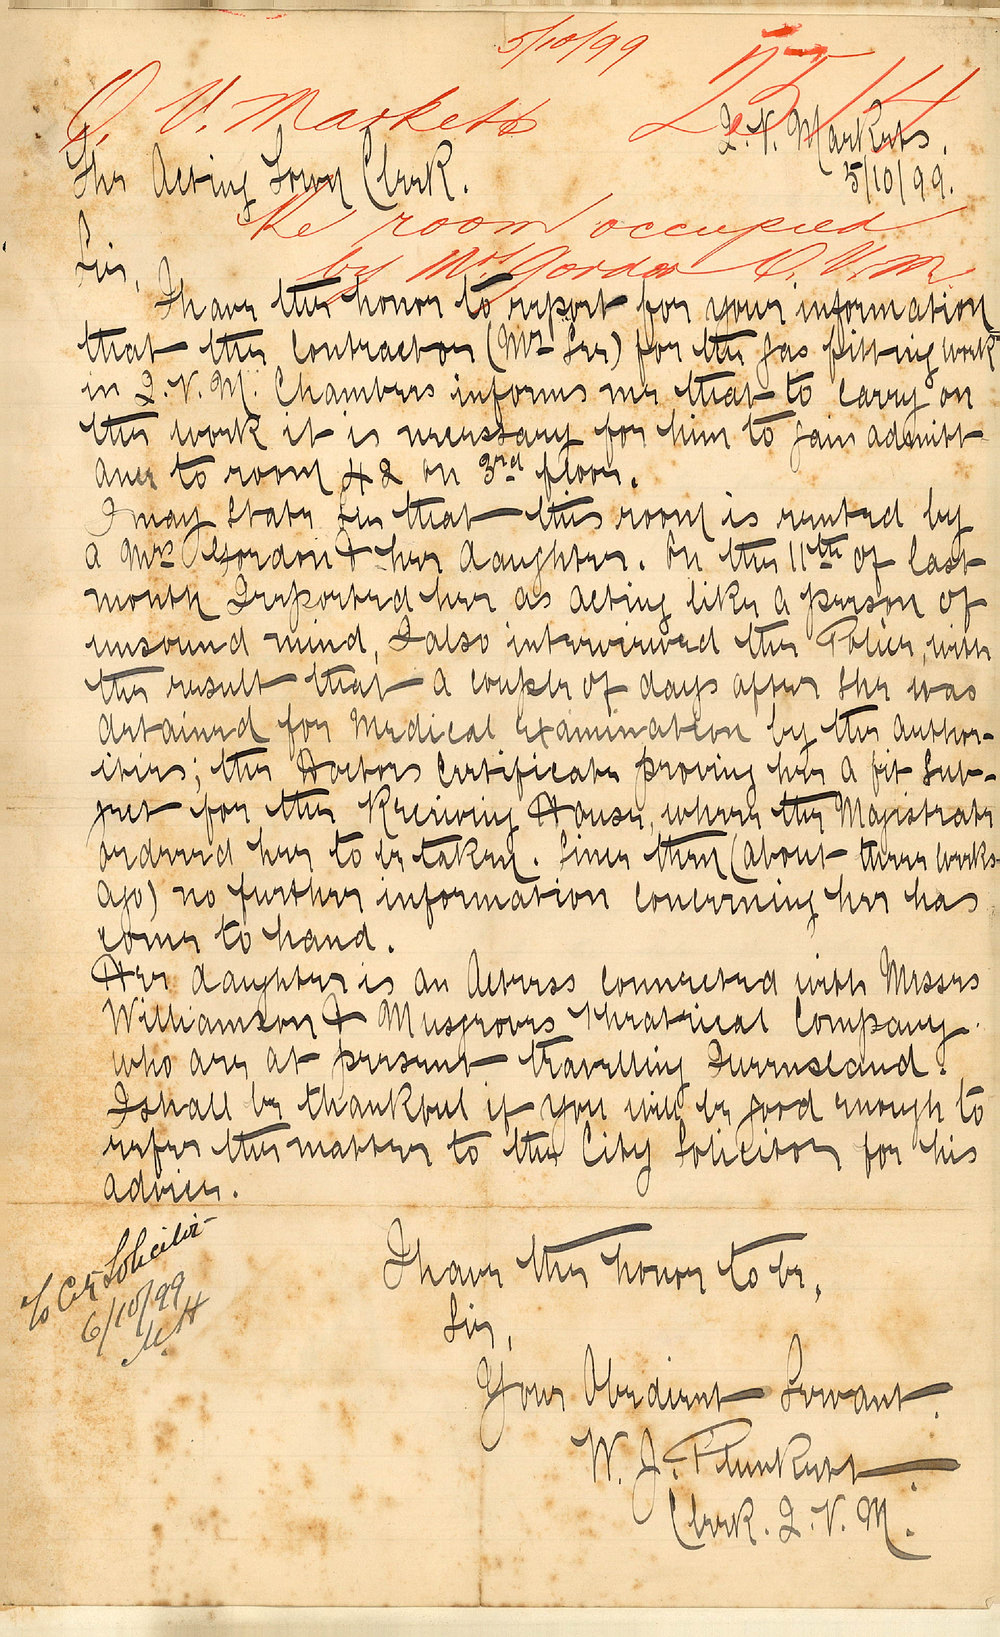 5/10/99
Q. V. Markets
Q. V. Markets.
The Acting Town Clerk.
5/10/99.
Re room occupied
by Mrs Gordon Q. V. M.
Sir,
I have the honor to report for your information
that the Contractor (Mr Lee) for the gas fitting work
in Q. V. M. Chambers informs me that to carry on
the work it is necessary for him to gain admitt-
ance to room 42 on 3rd floor.
I may state Sir that this room is rented by
a Mrs Gordon & her daughter. On the 11th of last
month I reported her as acting like a person of
unsound mind, I also interviewed the Police, with
the result that a couple of days after she was
detained for Medical examination by the author-
ities; the Doctors Certificate proving her a fit sub-
ject for the Receiving House, where the Magistrate
ordered her to be taken. Since then (about three weeks
ago) no further information concerning her has
come to hand.
Her daughter is an Actress connected with Messrs
Williamson & Musgroves Theatrical Company
who are at present travelling Queensland.
I shall be thankful if you will be good enough to
refer the matter to the City Solicitor for his
advice.
To City Solicitor
6/10/99
I have the honor to be,
Sir,
Your Obedient Servant.
W. J. Plunkett
Clerk. Q. V. M.